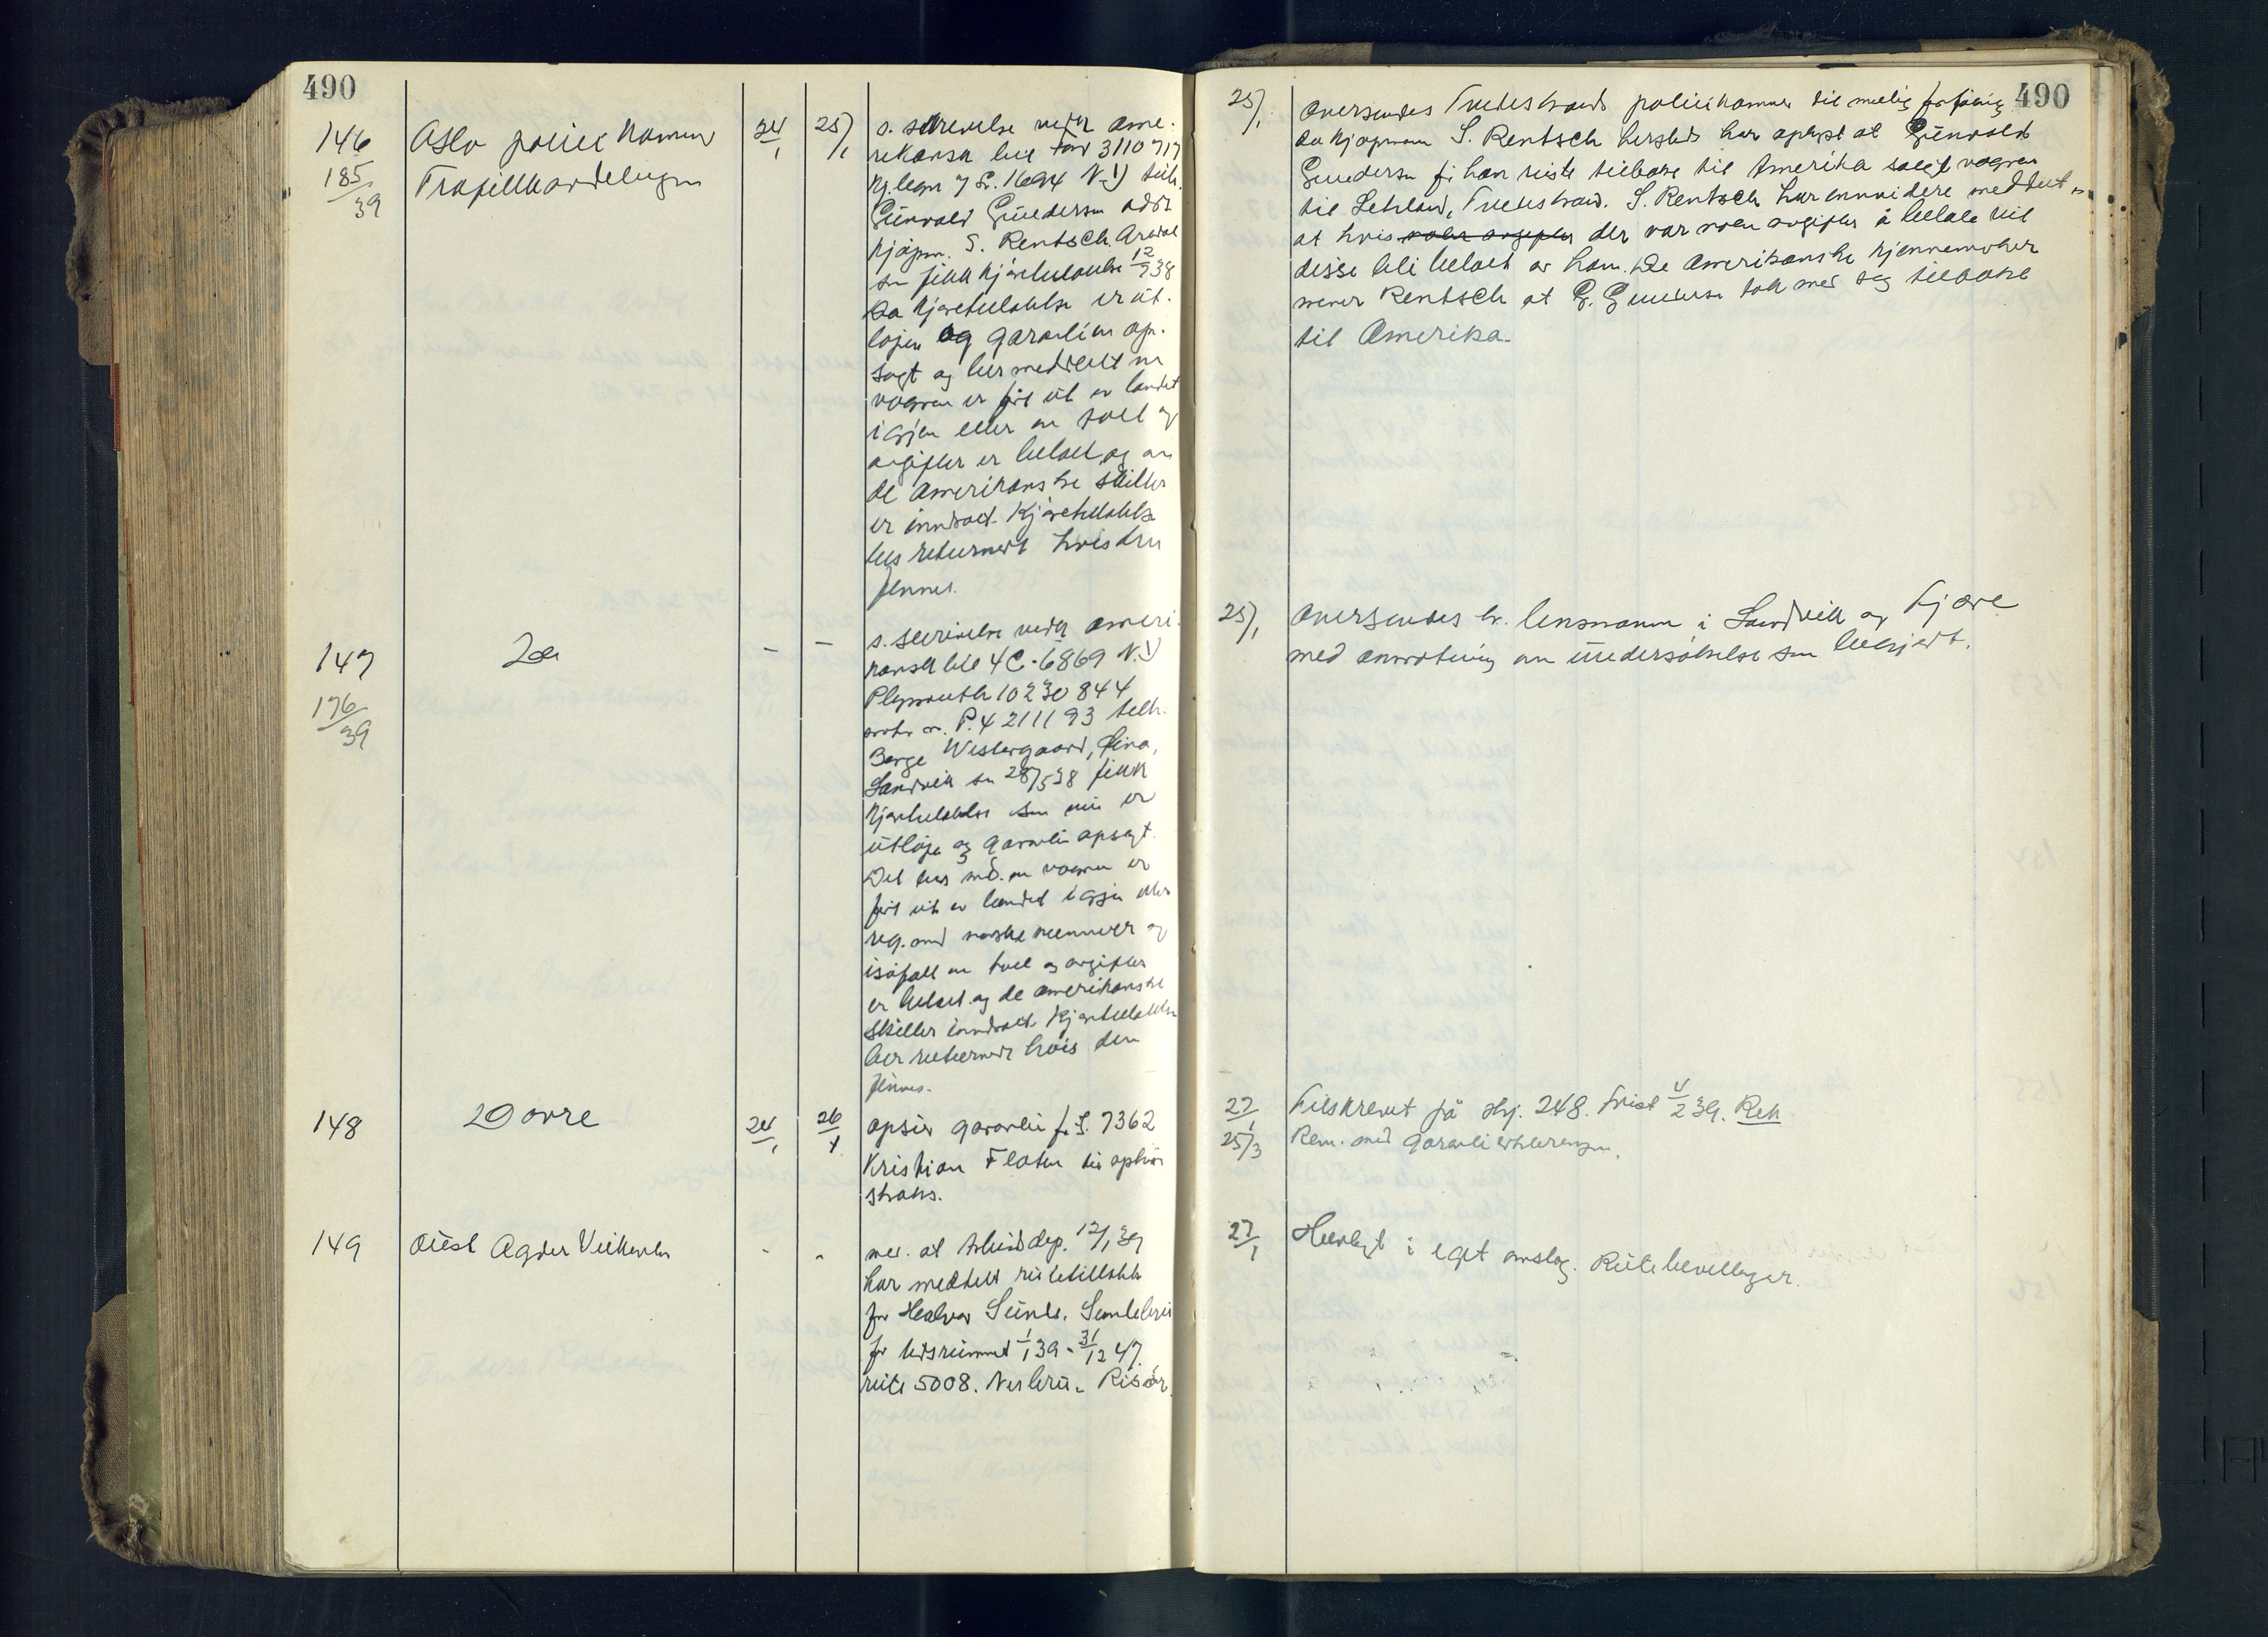 490
146
185/39
Oslo politikammer
Trafikkavdelingen
24/1
25/1
s. skrivelse vedr ame-
rikansk bil Ford 3110717
Kj.tegn 7 G. 1694 N.J. tilh.
Gunvald Gundersen adr.
Kjøpm. S. Rentsch. Arendal
som fikk kjøretillatelse 12/7 38
Da kjøretillatelse er ut-
løpen og garantien op-
sagt og bes meddelt om
vognen er ført ut av landet
igjen eller om toll og
avgifter er betalt og om
de amerikanske skilter
er inndradt. Kjøretillatelse
bes returnert hvis den
finnes.
147
176/39
Do
-
-
s. skrivelse vedr ameri-
kansk bil 4C-6869 N.J.
Plymouth 10230844
motor nr. P.4 211193 tilh.
Børge Westergaard,
Landvik som 28/5 38 fikk
Kjøretillatelse som nu er
utløpen og garanti opsagt.
Det bes med. om vognen er
ført ut av landet igjen eller
reg. med norske nummer og
isåfall om toll og avgifter
er betalt og de amerikanske
skilter inndradt. Kjøretillatelsen
bes returnert hvis den
finnes.
148
Dovre
24/1
26/1
opsier garantien for I. 7362
Kristian Floten til ophør
straks.
149
Aust Agder Veikontor
-
-
med. at Arbeidsdep. 12/1 39
har meddelt rutetillatelse
for Halvor Sunde. Songebru
for tidsrummet 1/1 39 - 31/12 47.
rute 5008. Nesbru - Risør.
490
25/1
Oversendes Tvedestrand politikammer til
da kjøpmann S. Rentsch hersteds har oplyst at Gunvald
Gundersen før han reiste tilbake til Amerika solgte vognen
til Tvedestrand. S. Rentsch har ennvidere meddelt
at hvis noen avgifter der var noen avgifter å betale vil
disse bli betalt av ham. De amerikanske kjennemerker
mener Rentsch at G. Gundersen tok med seg tilbake
til Amerika.
25/1
Oversendes hr. lensmannen i Landvik og Fjære
med anmodning om undersøkelse som begjært.
27/1
Tilskrevet på skj. 248. Frist 4/2 39. Rek
25/3
Rem. med garantierklæringen.
27/1
Henlagt i eget omslag. Rutebevillinger.